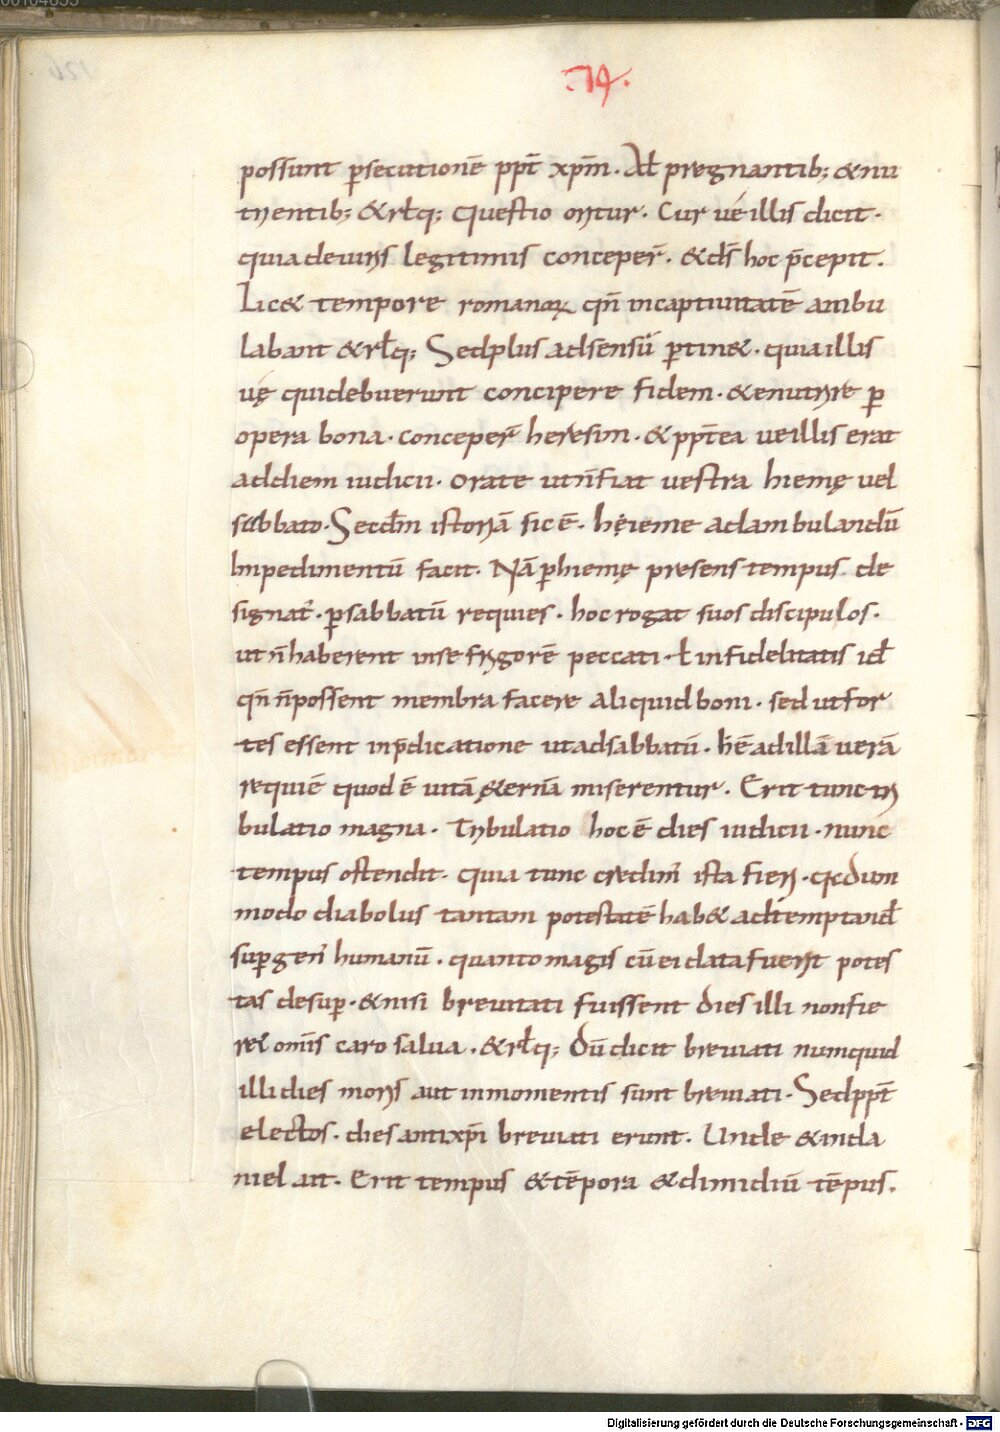 .74.
possunt ꝑsecutionē ppt̄ xp̄m. Ad̄ pregnantib; & nu
trientib; & rł̄q; Questio oritur. Cur ue illis dicit.
quia deuiris legitimis conceper̄. & d̄s hoc p̄cepit.
Lic& tempore romanoꝝ qn̄ in captiuitatē ambu
labant & rł̄q; Sed plus ad sensū ꝑtin&. quia illis
uę qui debuerunt concipere fidem. & enutrire ꝑ
opera bona. conceper̄ heresim. & ppt̄ea ue illis erat
ad diem iudicii. Orate ut n̄ fiat uestra hiemę uel
sabbato. Secdm̄ istoriā sic ē. hęieme ad ambulandū
Impedimentū facit. Nā ꝑ hiemę presens tempus de
signat̄. ꝑ sabbatū requies. hoc rogat suos discipulos.
ut n̄ haberent in se frigorē peccati. ł infidelitatis id̄
qn̄ n̄ possent membra facere aliquid boni. sed ut for
tes essent in p̄dicatione ut ad sabbatū. h̄ ē ad illā uerā
requiē quod ē uitā ęternā miserentur. Erit tunc tri
bulatio magna. Tribulatio hoc ē dies iudicii. nunc
tempus ostendit. quia tunc credim̄ ista fieri. qcdum
modo diabolus tantam potestatē hab& ad temptand̄
suꝑ gen̄ humanū. quanto magis cū ei data fuerit potes
tas desuꝑ. & nisi breuitati fuissent dies illi non fie
ret om̄is caro salua. & rł̄q; Dū dicit breuiati numquid
illi dies moris aut in momentis sunt breuiati. Sed ppt̄
electos. dies antixp̄i breuiati erunt. Unde & in da
niel ait. Erit tempus & tēpora & dimidiū tēpus.
Digitalisierung gefördert durch die Deutsche Forschungsgemeinschaft - DFG